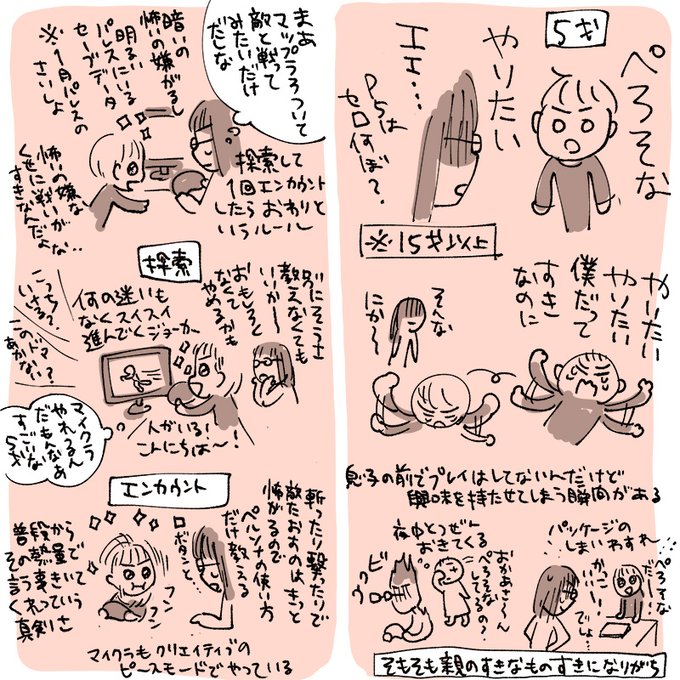 5才
ぺろそな
やりたい
エェ…
P5は
セロ何ぼ？
※15才以上
やりたい
やりたい
僕だって
すきなのに
そんな
にか〜
息子の前でプレイはしてないんだけど
興味を持たせてしまう瞬間がある
パッケージの
しまいわすれ
ぺろそな
だー
かっこ
いい…
でしょ…
夜中とつぜん
おきてくる
おかあさーん
ぺろそな
してるの？
ウッビ
そもそも親のすきなものすきになりがち
まあ
マップうろついて
敵と戦って
みたいだけ
だしな
暗いの
怖いの嫌がるし
明るいにいる
パレスの
セーブデータ
※1月パレスの
さいしょ
探索して
1回エンカウント
したらおわりと
いうルール
怖いの嫌な
くせに戦いが
すきなんだよな‥
探索
別にそう工
教えなくても
いいか〜
おもしろく
なくて
やめるかも
何の迷いも
なくスイスイ
進んでくジョーカー
こっち
いける？
このドア
あかない？
人がいる！
こんにちは〜！
マイクラ
やれてるん
だもんなあ
すごいな
5才
エンカウント
斬ったり撃ったりで
敵たおすのはきっと
怖がるので
ペルソナの使い方
だけ教える
ボタンと…
フンフン
普段から
その熱量で
言う事きいて
くれっていう
真剣さ
マイクラもクリエイティブの
ピースモードでやっている